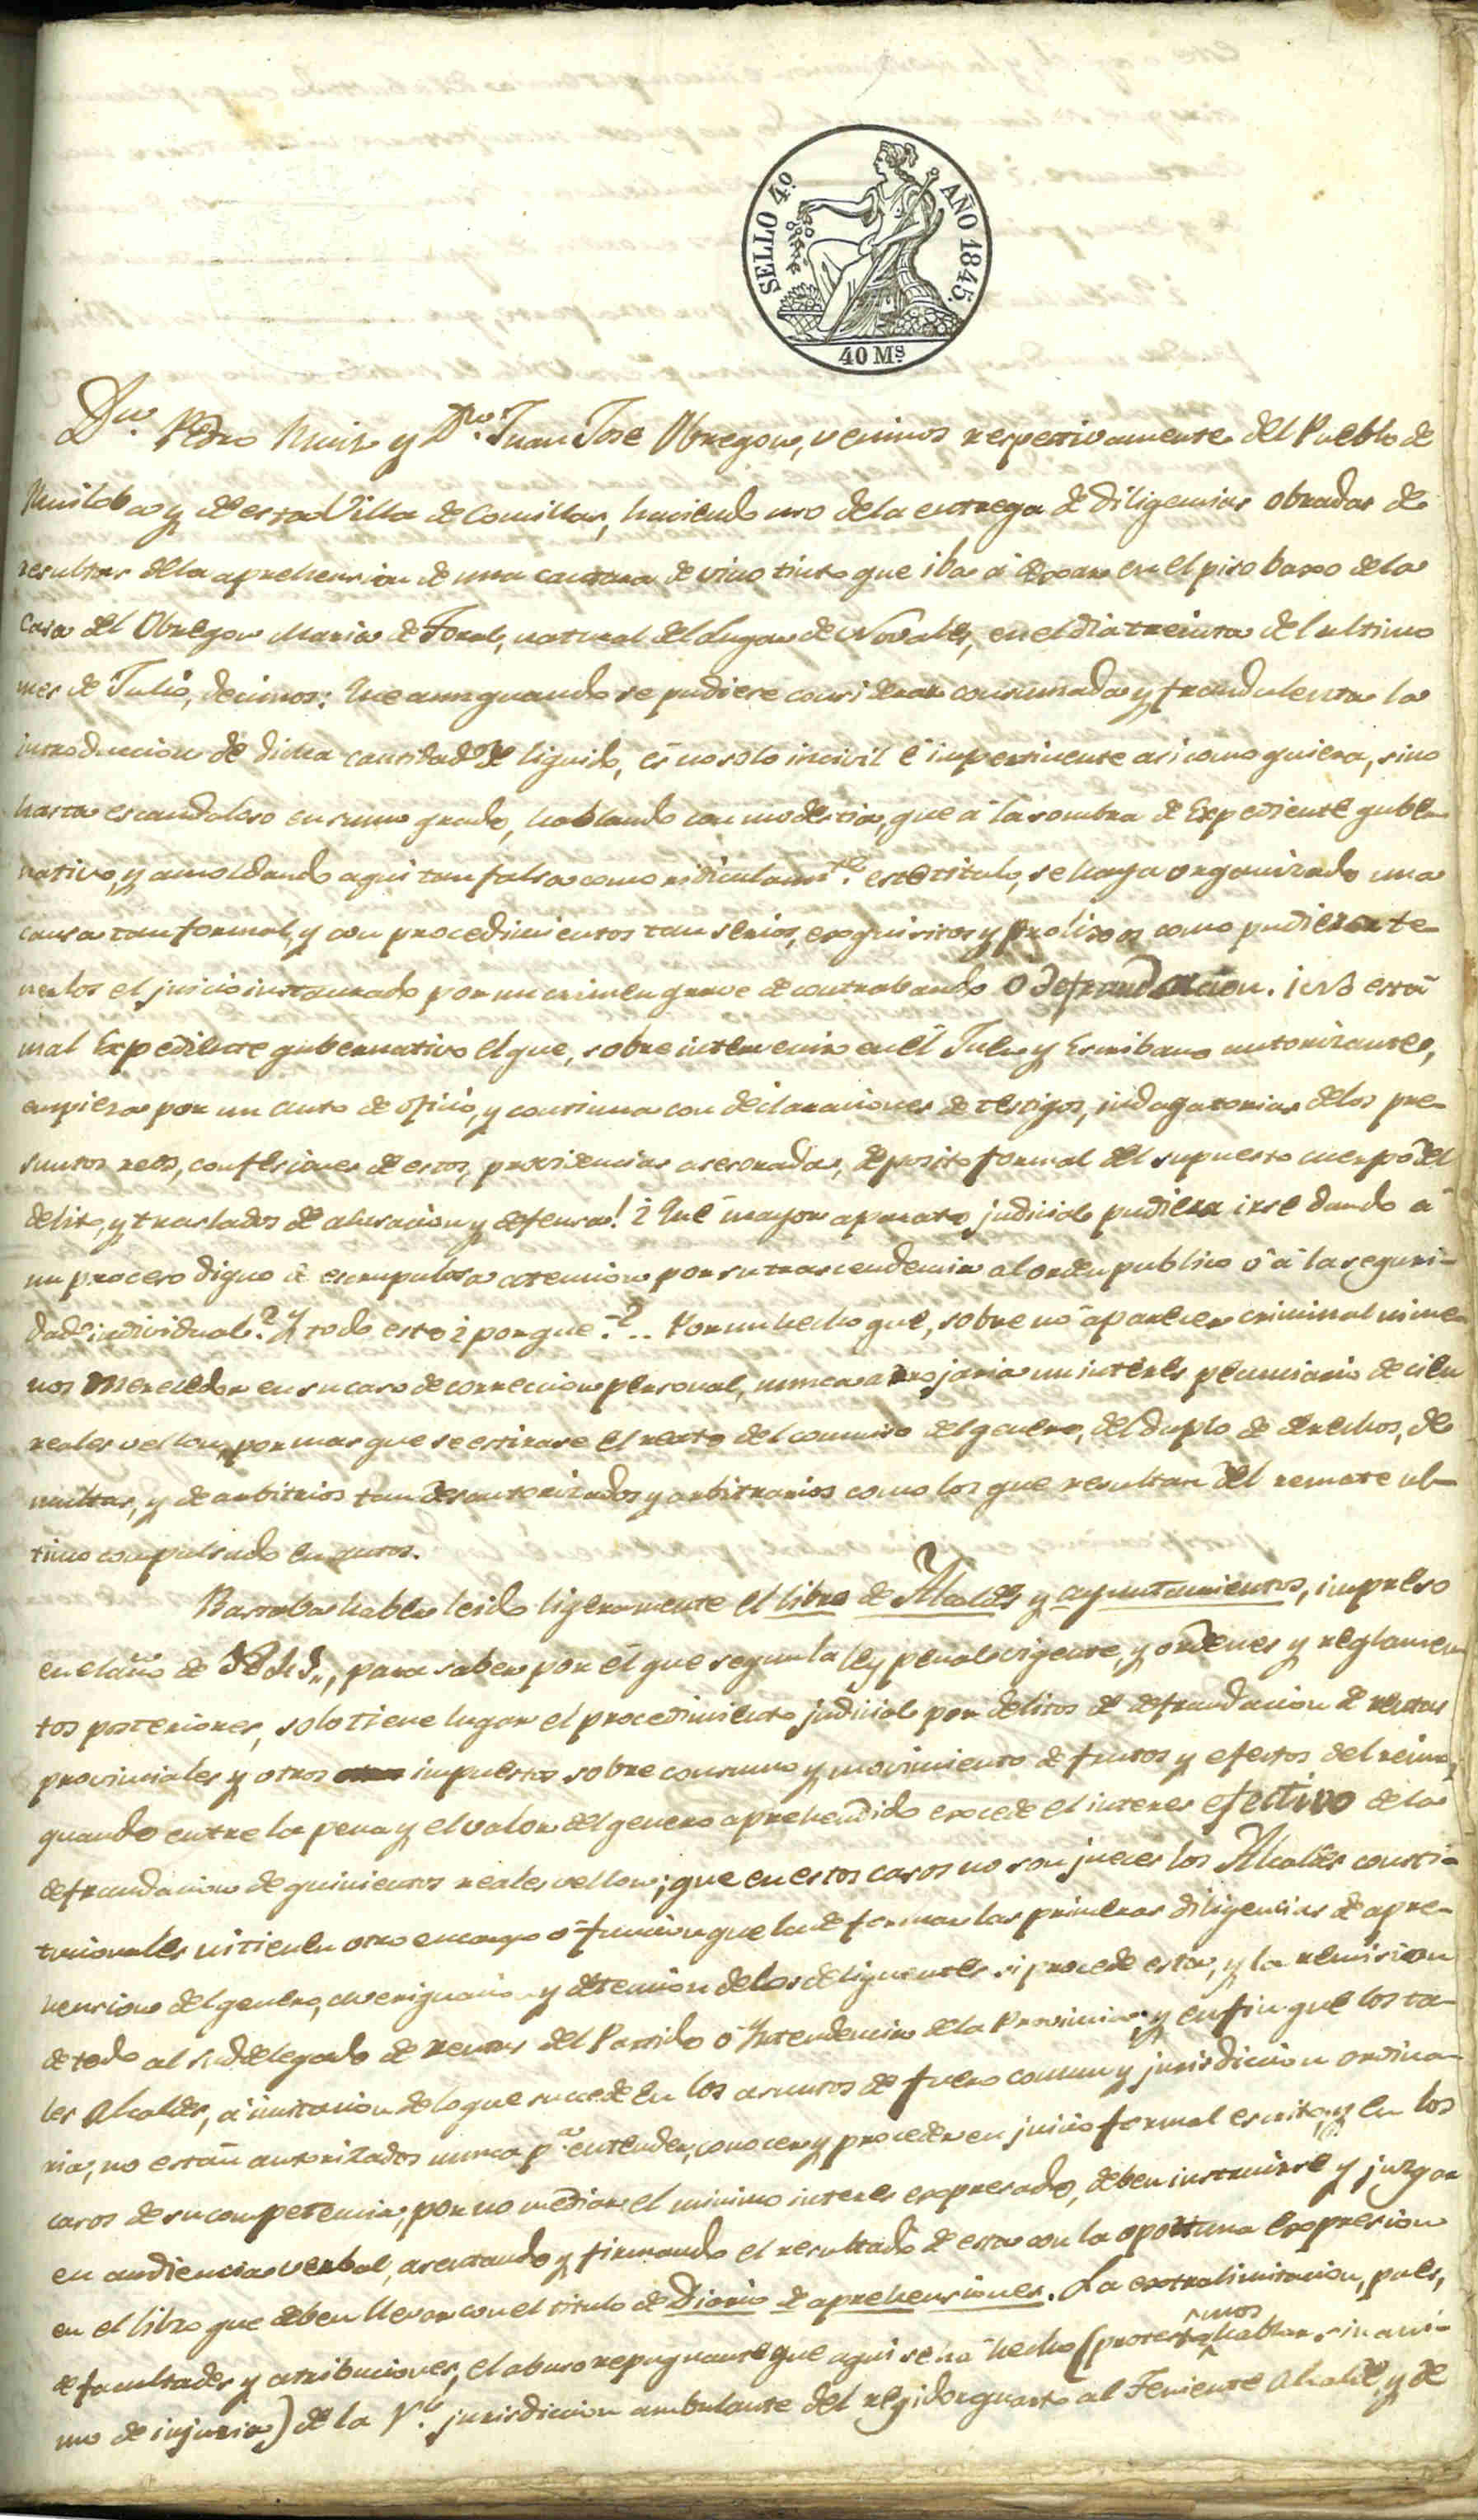 SELLO 4º AÑO 1845.
40 Mˢ
Dn. Pedro Ruiz y Dn. Juan Jose Obregon, vecinos respectivamente del Pueblo de
Ruiloba y de esta Villa de Comillas, haciendo uso de la entrega de diligencias obradas de
resultas de la aprehension de una cantara de vino tinto que iba á dexar en el piso baxo de la
casa del Obregon Maria de Toral, natural del Lugar de Novales, en el dia treinta del ultimo
mes de Julio, decimos: Que aunquando se pudiere considerar consumada y fraudulenta la
introduccion de dicha cantidad de liquido, es no solo incivil é impertinente asi como quiera, sino
hasta escandaloso en sumo grado, hablando con modestia, que á la sombra de Expediente guber-
nativo, y amoldando aqui tan falsa como ridiculamte. este titulo, se haya organizado una
causa tan formal, y con procedimientos tan serios, exquisitos y prolixos como pudieran te-
nerlos el juicio instaurado por un crimen grave de contrabando o defraudacion. ¡Y no está
mal Expediente gubernativo el que, sobre intervenir en él Juez y Escribano autorizante,
empieza por un auto de oficio, y continua con declaraciones de testigos, indagatorias de los pre-
suntos reos, confesiones de estos, providencias asesoradas, deposito formal del supuesto cuerpo del
delito, y traslados de acusacion y defensa! ¿Qué mayor aparato judicial pudiera irse dando á
un proceso digno de escrupulosa atencion por su trascendencia al orden publico ó á la seguri-
dad individual? Y todo esto ¿porque?.. Por un hecho que, sobre no aparecer criminal ni me-
nos merecedor en su caso de correccion personal, nunca arrojaria un interes pecuniario de cien
reales vellon, por mas que se estirase el texto del comiso del genero, del duplo de derechos, de
multas, y de arbitrios tan desautorizados y arbitrarios como los que resultan del remate ul-
timo compulsado en autos.
Bastaba haber leido ligeramente el libro de Alcaldes y ayuntamientos, impreso
en el año de, para saber por él que segun la ley penal vigente, y ordenes y reglamen-
tos posteriores, solo tiene lugar el procedimiento judicial por delitos de defraudacion de rentas
provinciales y otros impuestos sobre consumo y movimiento de frutos y efectos del reino,
quando entre la pena y el valor del genero aprehendido excede el interes efectivo de la
defraudacion de quinientos reales vellon; que en estos casos no son jueces los Alcaldes consti-
tucionales ni tienen otro encargo ó funcion que la de formar las primeras diligencias de apre-
hension del genero, averiguacion y detencion de los delinquentes si procede esta, y la remision
de todo al Subdelegado de rentas del Partido ó Yntendencia de la Provincia; y en fin que los ta-
les Alcaldes, á imitacion de lo que sucede en los asuntos de fuero comun y jurisdiccion ordina-
ria, no están autorizados nunca pa. entender, conocer y proceder en juicio formal escrito, y en los
casos de su competencia, por no mediar el minimo interes expresado, deben instruirse y juzgar
en audiencia verbal, asentando y firmando el resultado de esta con la oportuna expresion
en el libro que deben llevar con el titulo de Diario de aprehensiones. La extralimitacion, pues,
de facultades y atribuciones, el abuso repugnante que aqui se ha hecho (protestamos hablar sin ani-
mo de injuria) de la Rl. jurisdiccion ambulante del regidor quarto al Teniente Alcalde, y de